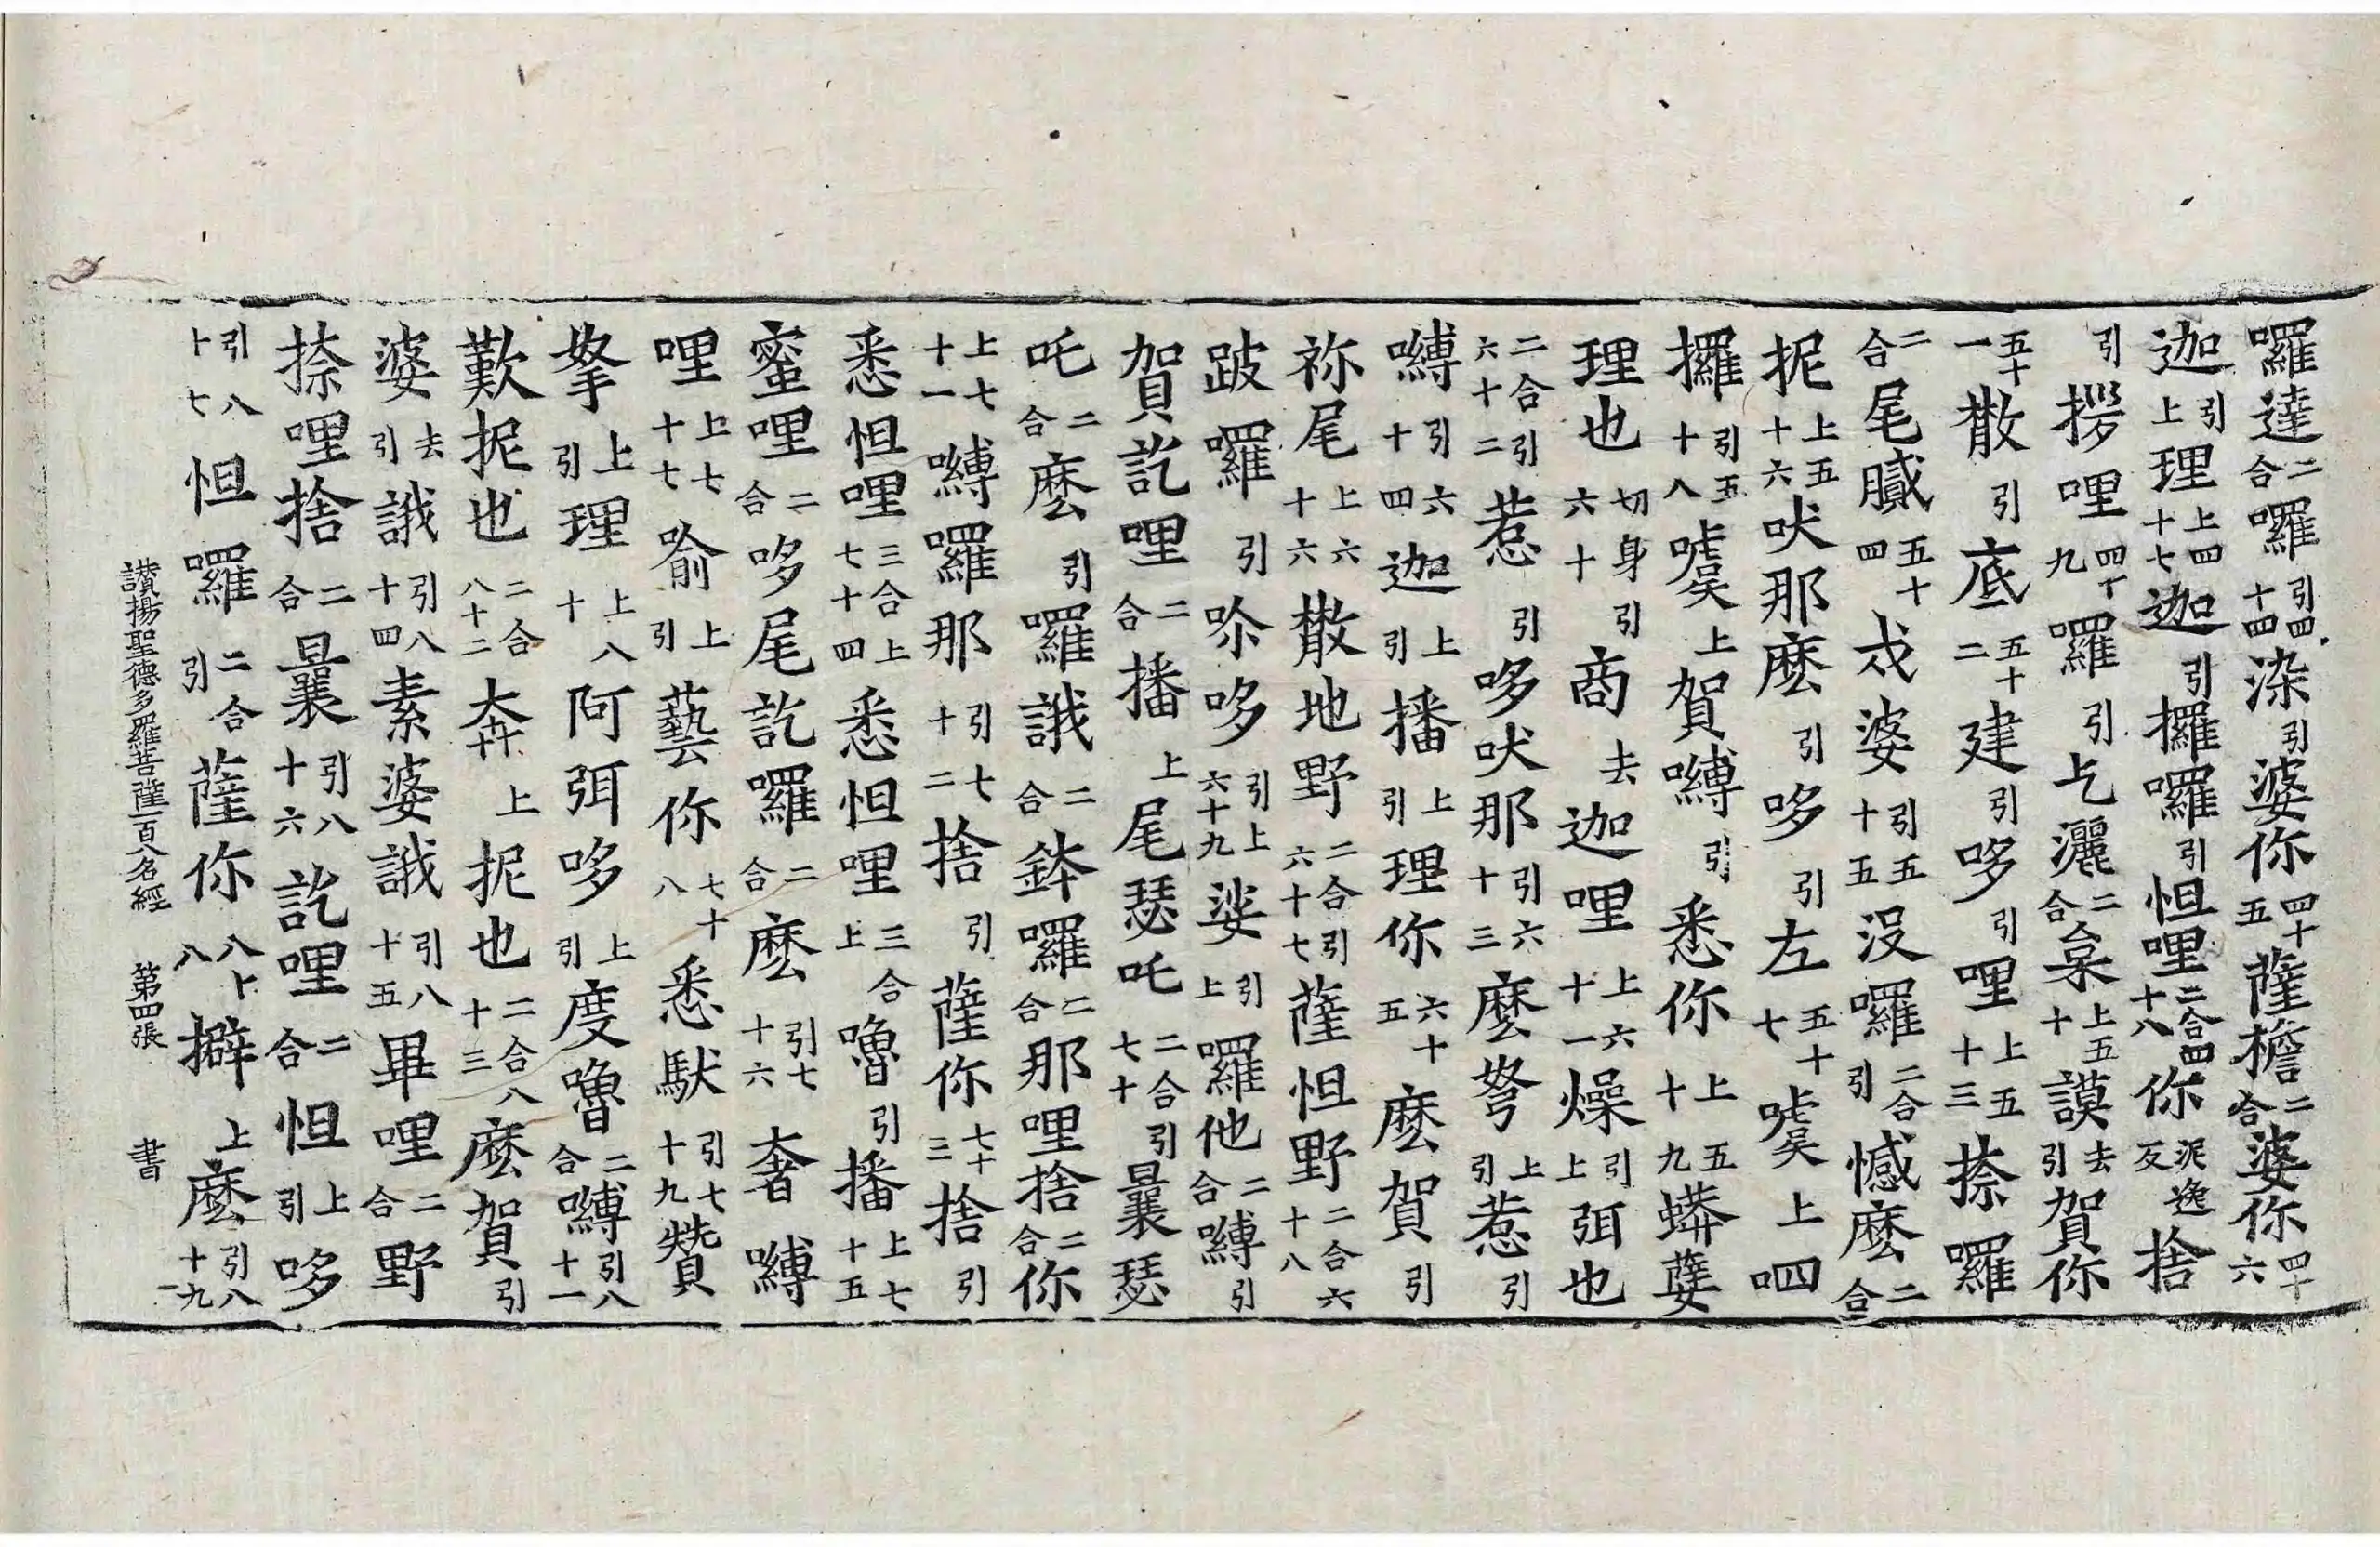 囉達二合囉引四十四染引婆你四十五薩檐二合婆你四十六
迦引上理上四十七迦引攞囉引怛哩二合四十八你泥逸反捨
引拶哩四十九羅引乞灑二合枲上五十謨去引賀你
五十一散引底五十二建引哆引哩上五十三捺羅
二合尾膩五十四戍婆引五十五沒囉二合引憾麼二合
抳上五十六吠那麼引哆引左五十七嘘上呬
攞引五十八嘘上賀嚩引悉你上五十九蟒㜸
理也切身引六十商去迦哩上六十一燥引上弭也
二合引六十二惹引哆吠那引六十三麼拏上引惹引
嚩引六十四迦上引播上引理你六十五麼賀引
祢尾上六十六散地野二合引六十七薩怛野二合六十八
跛囉引哆引上六十九娑引上羅他二合嚩引
賀訖哩二合播上尾瑟吒二合引七十曩瑟
吒二合麼引囉誐二合鉢囉二合那哩捨二合你
上七十一嚩囉那引七十二捨引薩你七十三捨引
悉怛哩三合上七十四悉怛哩三合上嚕引播上七十五
蜜哩二合哆尾訖囉二合麼引七十六奢嚩
哩上七十七喻上引藝你七十八悉馱引七十九贊
拏上引理上八十阿弭哆上引度嚕二合嚩引八十一
歎抳也二合八十二奔上抳也二合八十三麼賀引
婆去引誐引八十四素婆誐引八十五畢哩二合野
捺哩捨二合曩引八十六訖哩二合怛上引哆
引八十七怛囉二合引薩你八十八擗上麼引八十九
讃揚聖德多羅菩薩一百八名經 第四張 書